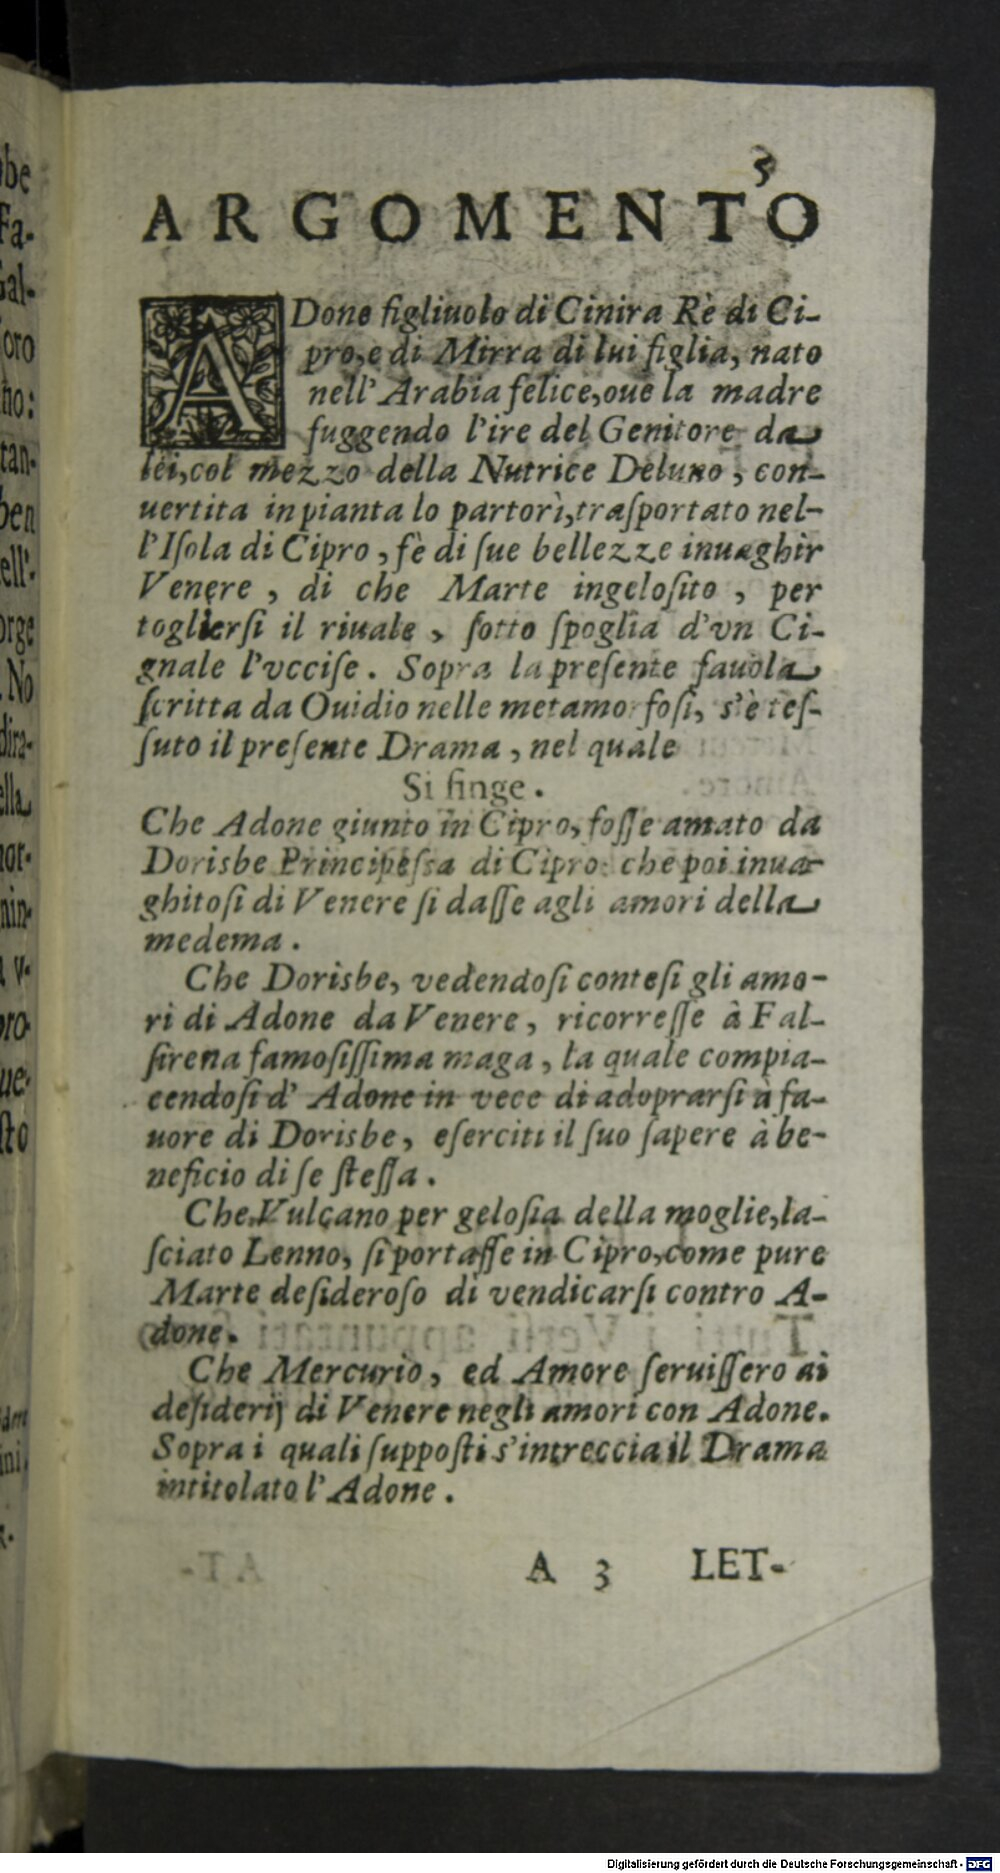 5
ARGOMENTO
ADone figliuolo di Cinira Rè di Ci-
pro, e di Mirra di lui figlia, nato
nell' Arabia felice, oue la madre
fuggendo l'ire del Genitore da
lei, col mezzo della Nutrice Deluso, con-
uertita in pianta lo partorì, traſportato nel-
l'Iſola di Cipro, fè di ſue bellezze inuaghir
Venere, di che Marte ingeloſito, per
toglierſi il riuale, ſotto ſpoglia d'vn Ci-
gnale l'vcciſe. Sopra la preſente fauola
ſcritta da Ouidio nelle metamorfoſi, s'è teſ-
ſuto il preſente Drama, nel quale
Si finge.
Che Adone giunto in Cipro, foſſe amato da
Dorisbe Principeſsa di Cipro: che poi inua-
ghitoſi di Venere ſi daſſe agli amori della
medema.
Che Dorisbe, vedendoſi conteſi gli amo-
ri di Adone da Venere, ricorreſſe à Fal-
ſirena famoſiſſima maga, la quale compia-
cendoſi d' Adone in vece di adoprarſi à fa-
uore di Dorisbe, eſerciti il ſuo ſapere à be-
neficio di ſe ſteſſa.
Che Vulcano per geloſia della moglie, la-
ſciato Lenno, ſi portaſſe in Cipro, come pure
Marte deſideroſo di vendicarſi contro A-
done.
Che Mercurio, ed Amore ſeruiſſero ai
deſiderij di Venere negli amori con Adone.
Sopra i quali ſuppoſti s'intreccia il Drama
intitolato l'Adone.
A 3 LET-
Digitalisierung gefördert durch die Deutsche Forschungsgemeinschaft - DFG